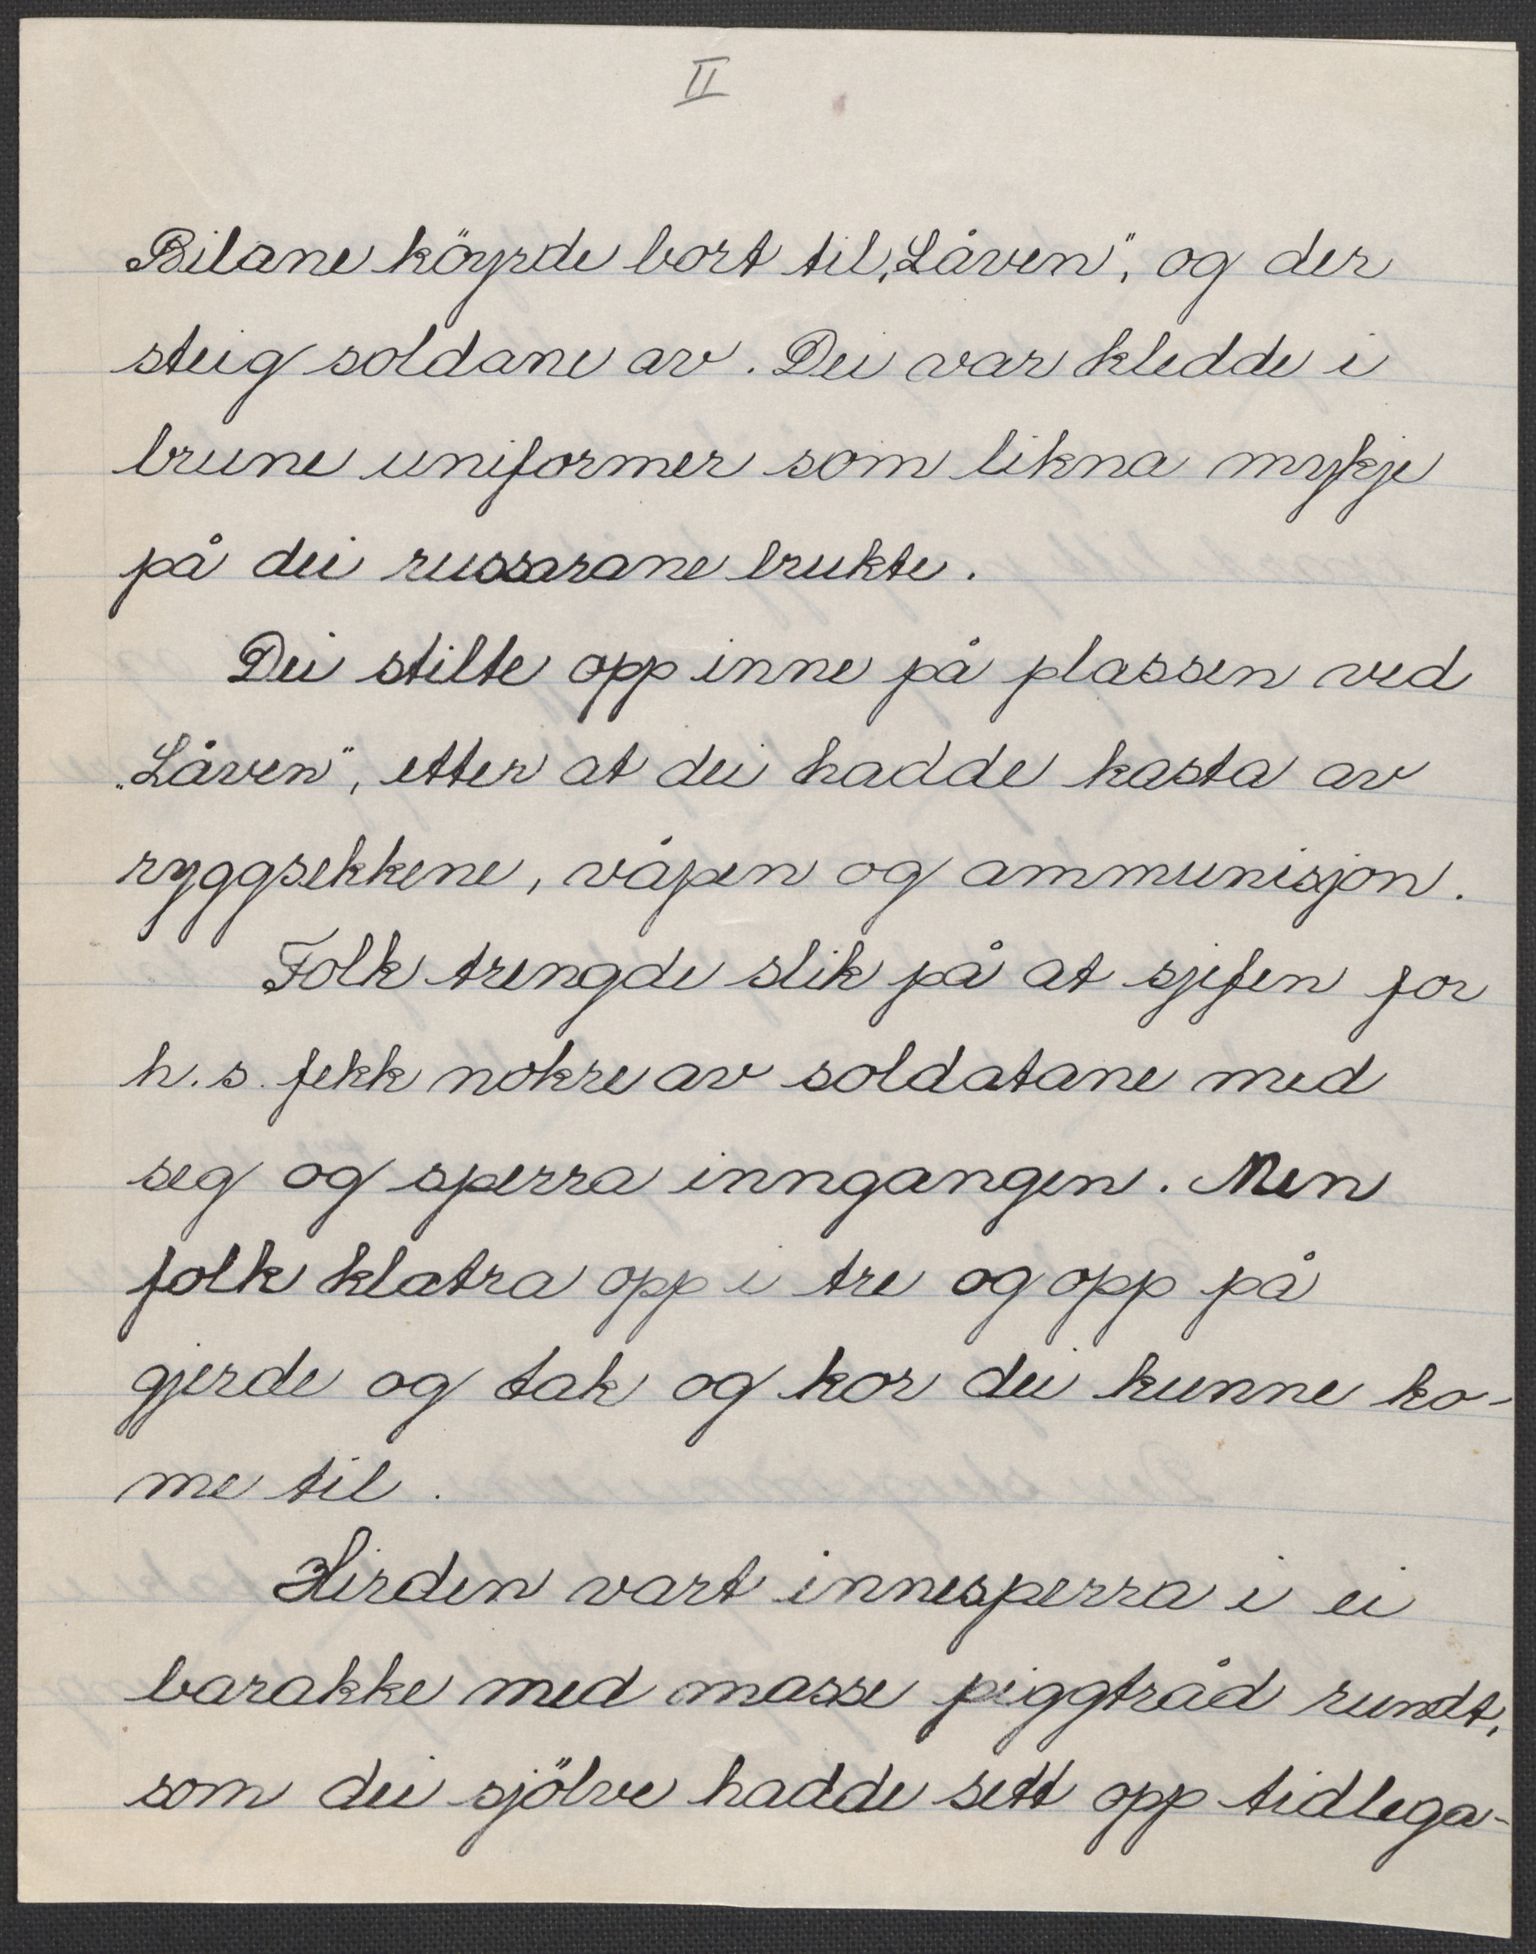 II
Bilane köyrde bort til „Låven", og der
steig soldane av. Dei var kledde i
brune uniformer som likna mykje
på dei russarane brukte.
Dei stilte opp inne på plassen ved
„Låven", etter at dei hadde kasta av
ryggsekkene, våpen og ammunisjon.
Folk trengde slik på at sjefen for
h.s. fekk nokre av soldatane med
seg og sperra inngangen. Men
folk klatra opp i tre og opp på
gjerde og tak og kor dei kunne ko-
me til.
Hirden vart innesperra i ei
barakke med masse piggtråd rundt,
som dei sjölve hadde sett opp tidlega-